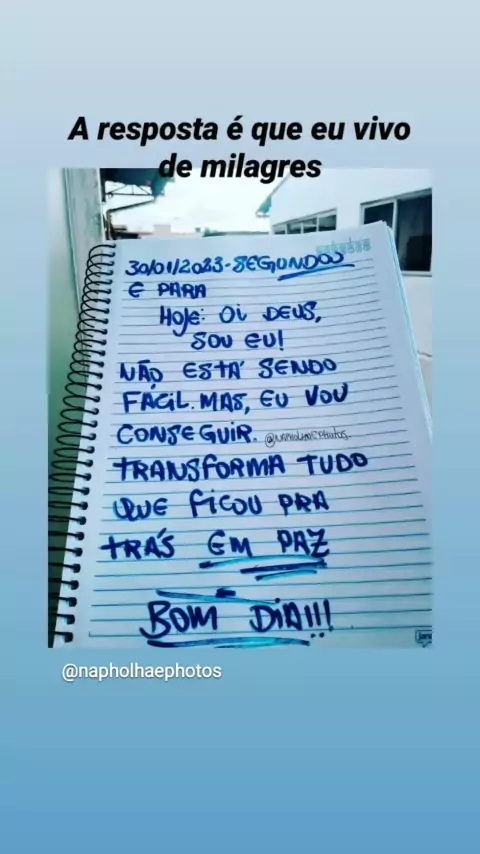 A resposta é que eu vivo
de milagres
30/01/2023-SEGUNDOU
E PARA
HOJE: OI DEUS,
SOU EU!
NÃO ESTÁ SENDO
FÁCIL. MAS, EU VOU
CONSEGUIR. @napholhaephotos
TRANSFORMA TUDO
QUE FICOU PRA
TRÁS EM PAZ
BOM DIA!!!
@napholhaephotos